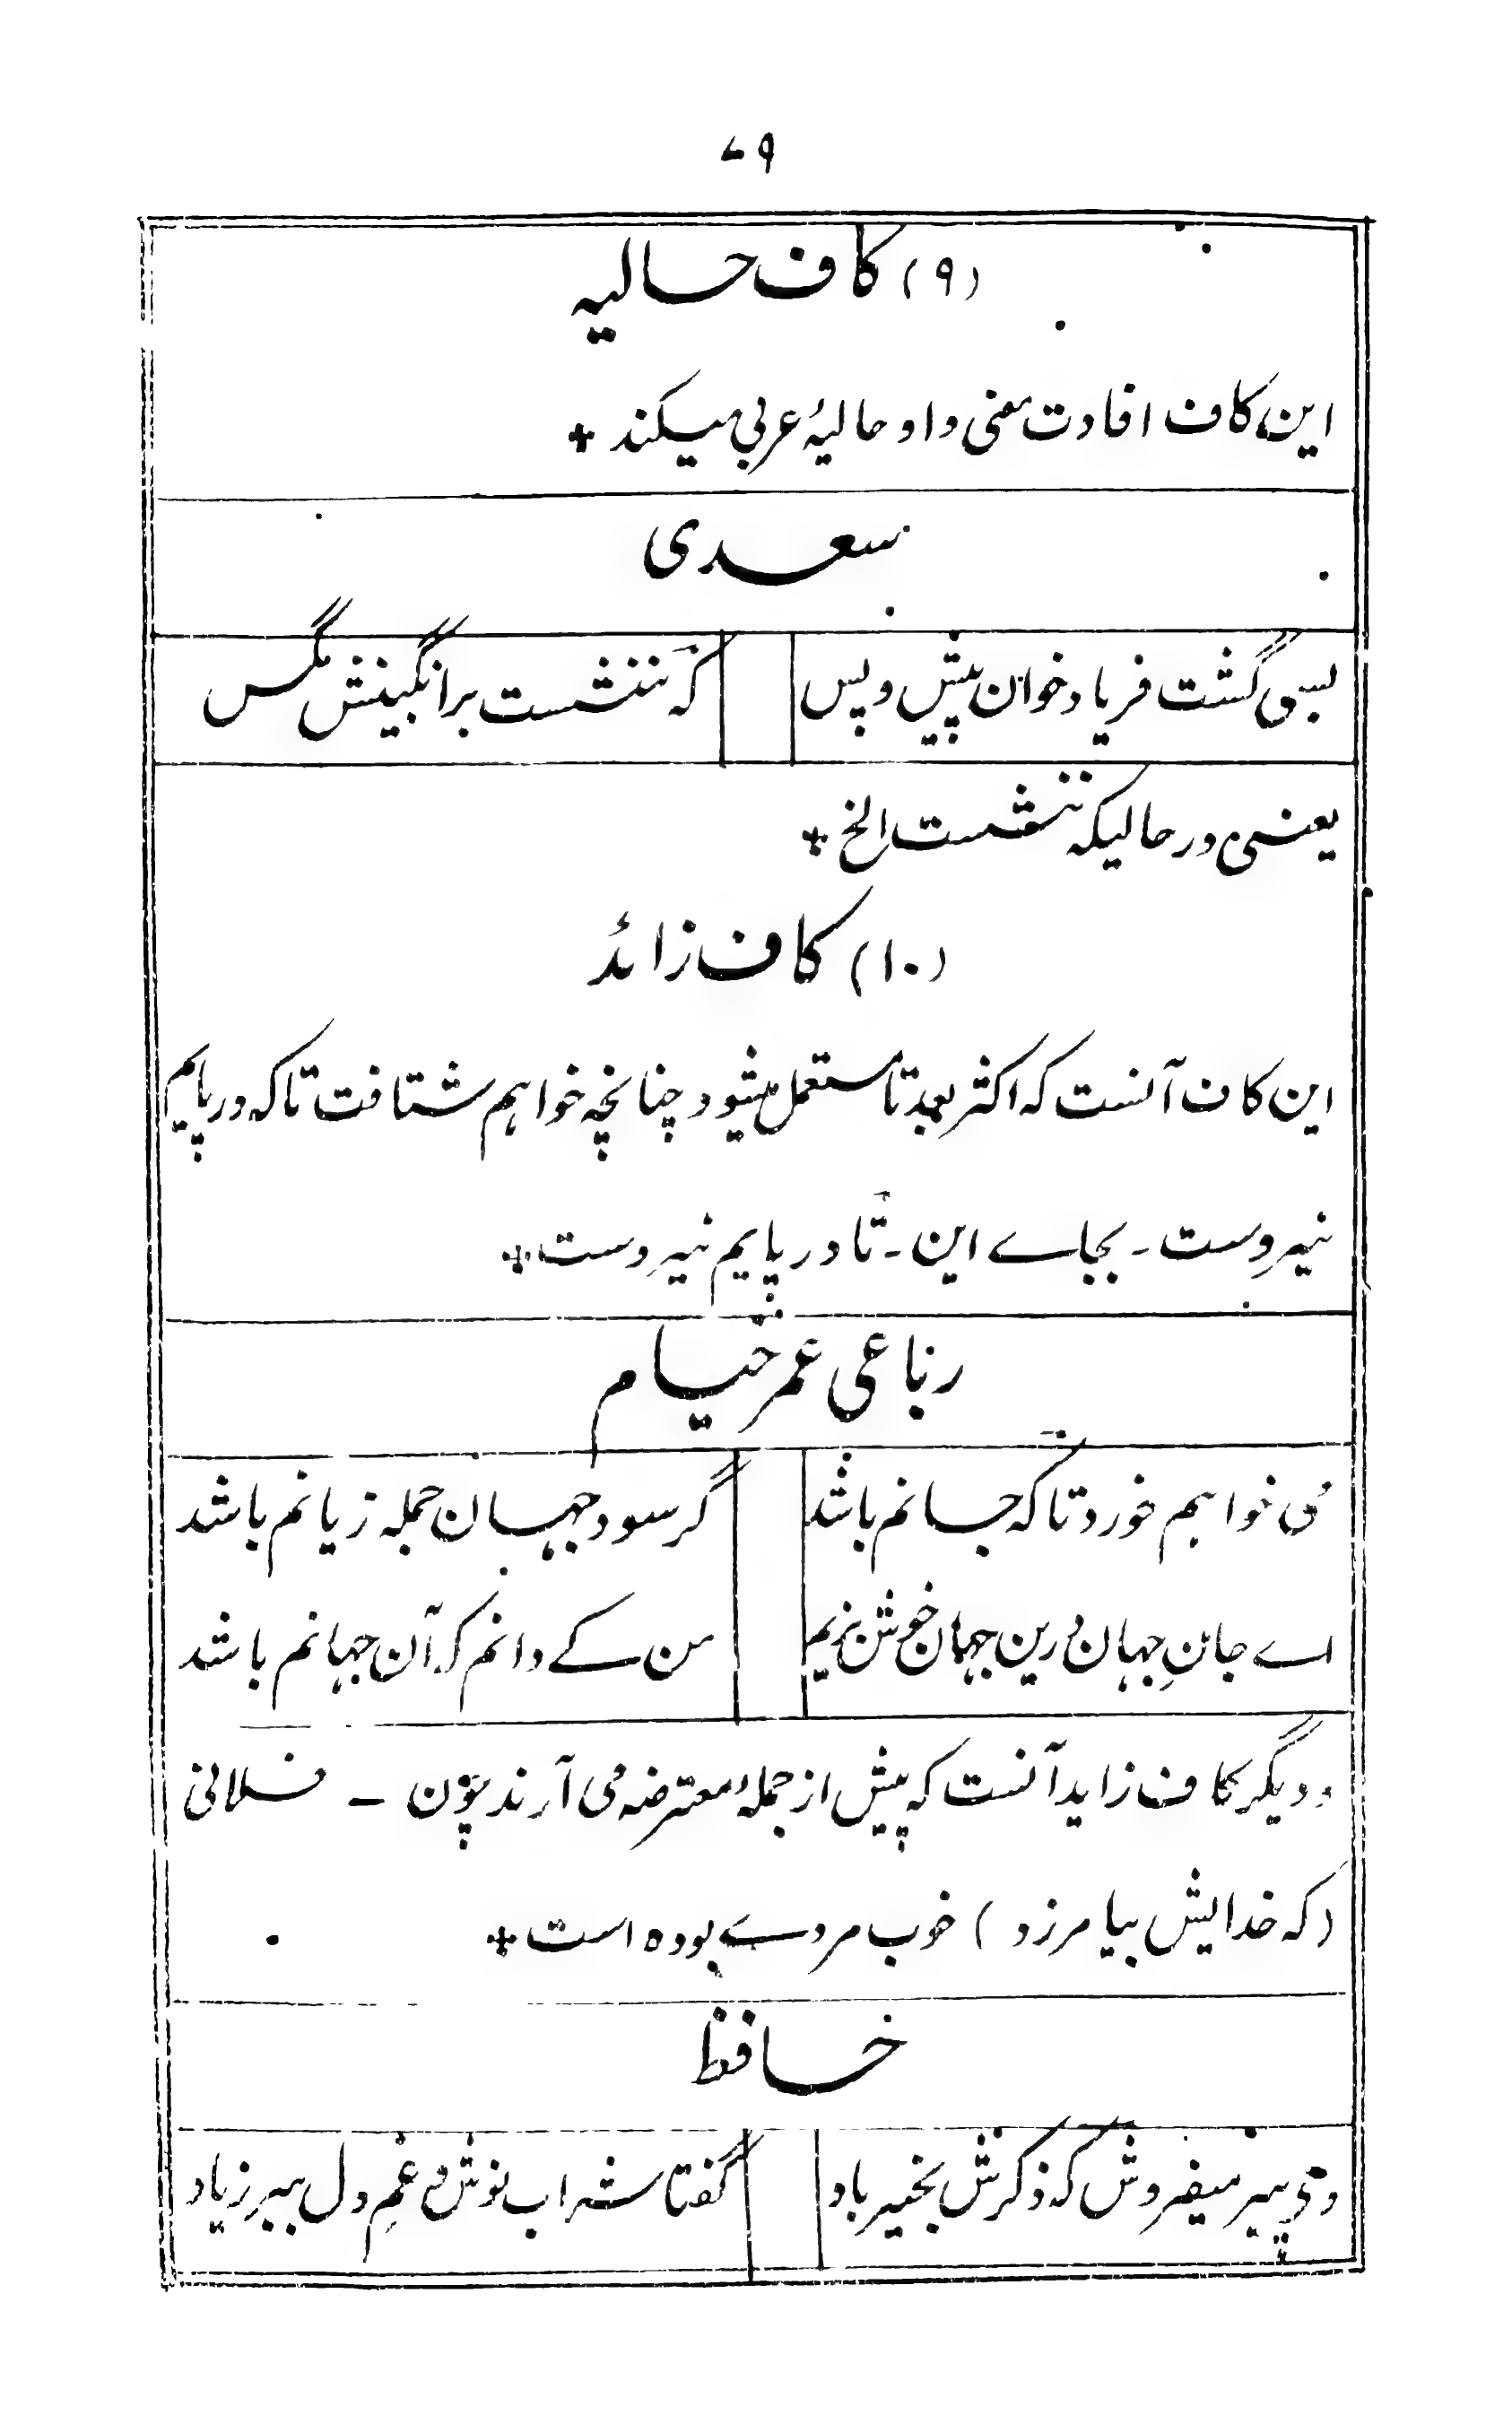 ۷۹
(۹) کاف حالیہ
این کاف افادت معنی واو حالیۂ عربی میکند +
سعدی
بسی گشت فریاد خوان پیش و پس
کہ ننشست بر انگبینش مگس
یعنی در حالیکہ ننشست الخ +
(۱۰) کاف زائد
این کاف آنست کہ اکثر بعد تا مستعمل میشود چنانچہ خواہم شتافت تا کہ در پایم
نیروست ۔ بجاے این ۔ تا در پایم نیروست +
رباعی عمر خیام
می خواہم خورد تا کہ جانم باشد
گر سود جہان جملہ زیانم باشد
اے جانِ جہان درین جہان خوش بزیم
من کے دانم کہ آن جہانم باشد
و دیگر کاف زاید آنست کہ پیش از جملۂ معترضہ می آرند چون ۔ فلانی
(کہ خدایش بیامرزد) خوب مردے بودہ است +
حافظ
دی پیر میفروش کہ ذکرش بخیر باد
گفتا شراب نوش و غمِ دل ببر زیاد